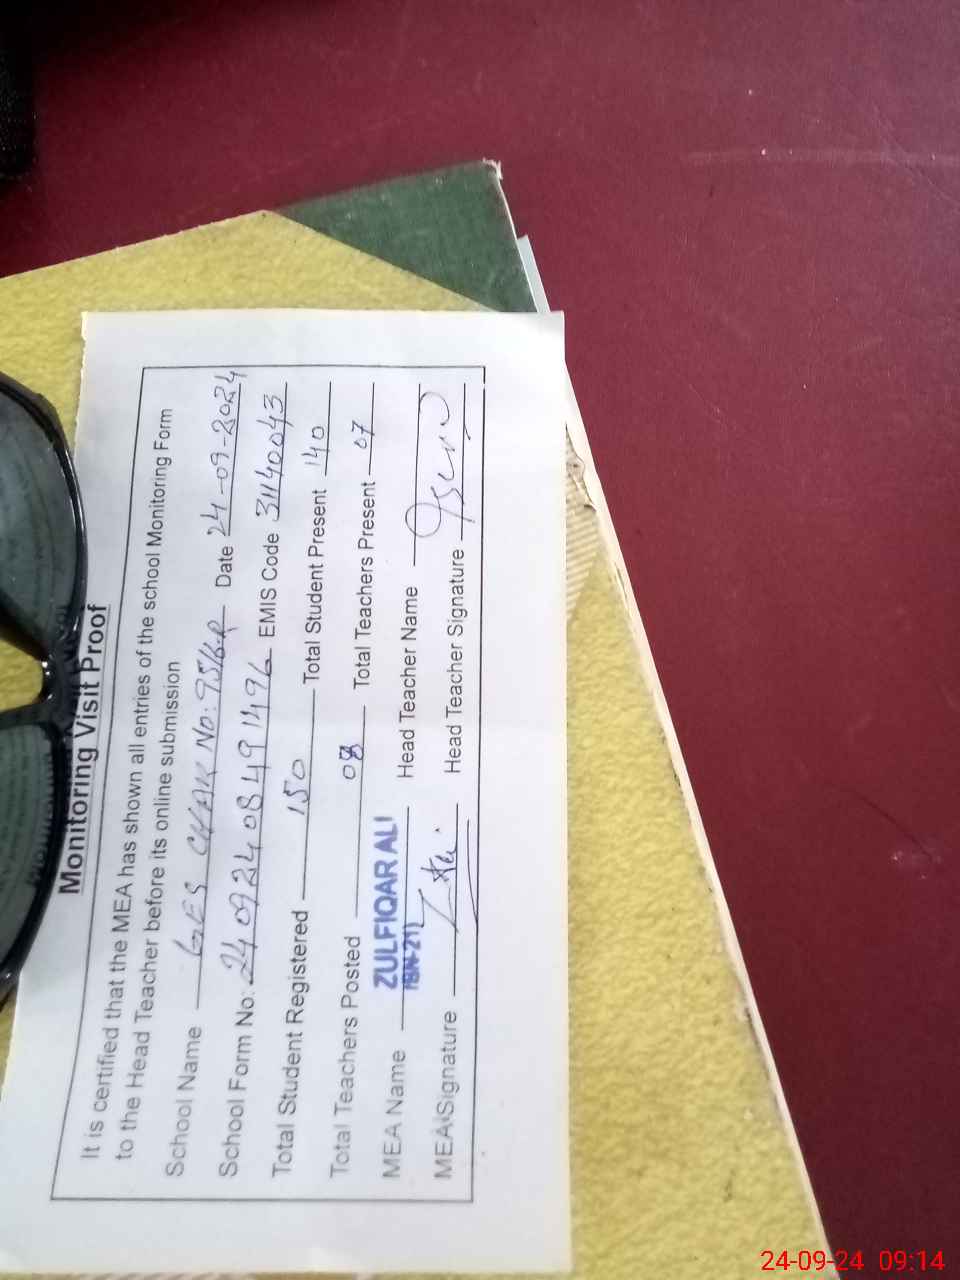 Monitoring Visit Proof
It is certified that the MEA has shown all entries of the school Monitoring Form
to the Head Teacher before its online submission
School Name GES CHAK No: 95/6-R Date 24-09-2024
School Form No: 24092408491496 EMIS Code 31140043
Total Student Registered 150 Total Student Present 140
Total Teachers Posted 08 Total Teachers Present 07
MEA Name ZULFIQAR ALI Head Teacher Name
MEA Signature Head Teacher Signature
24-09-24 09:14